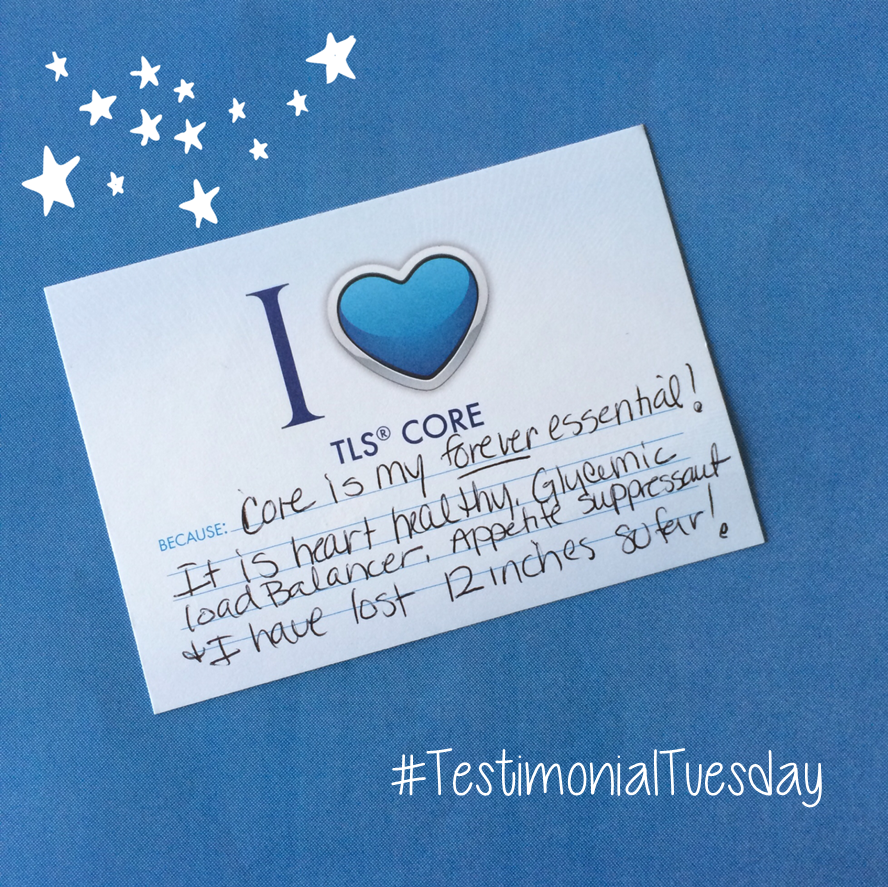 I
TLS® CORE
BECAUSE: Core is my forever essential!
It is heart healthy, Glycemic
load Balancer, Appetite Suppressant
& I have lost 12 inches so far!
#TestimonialTuesday